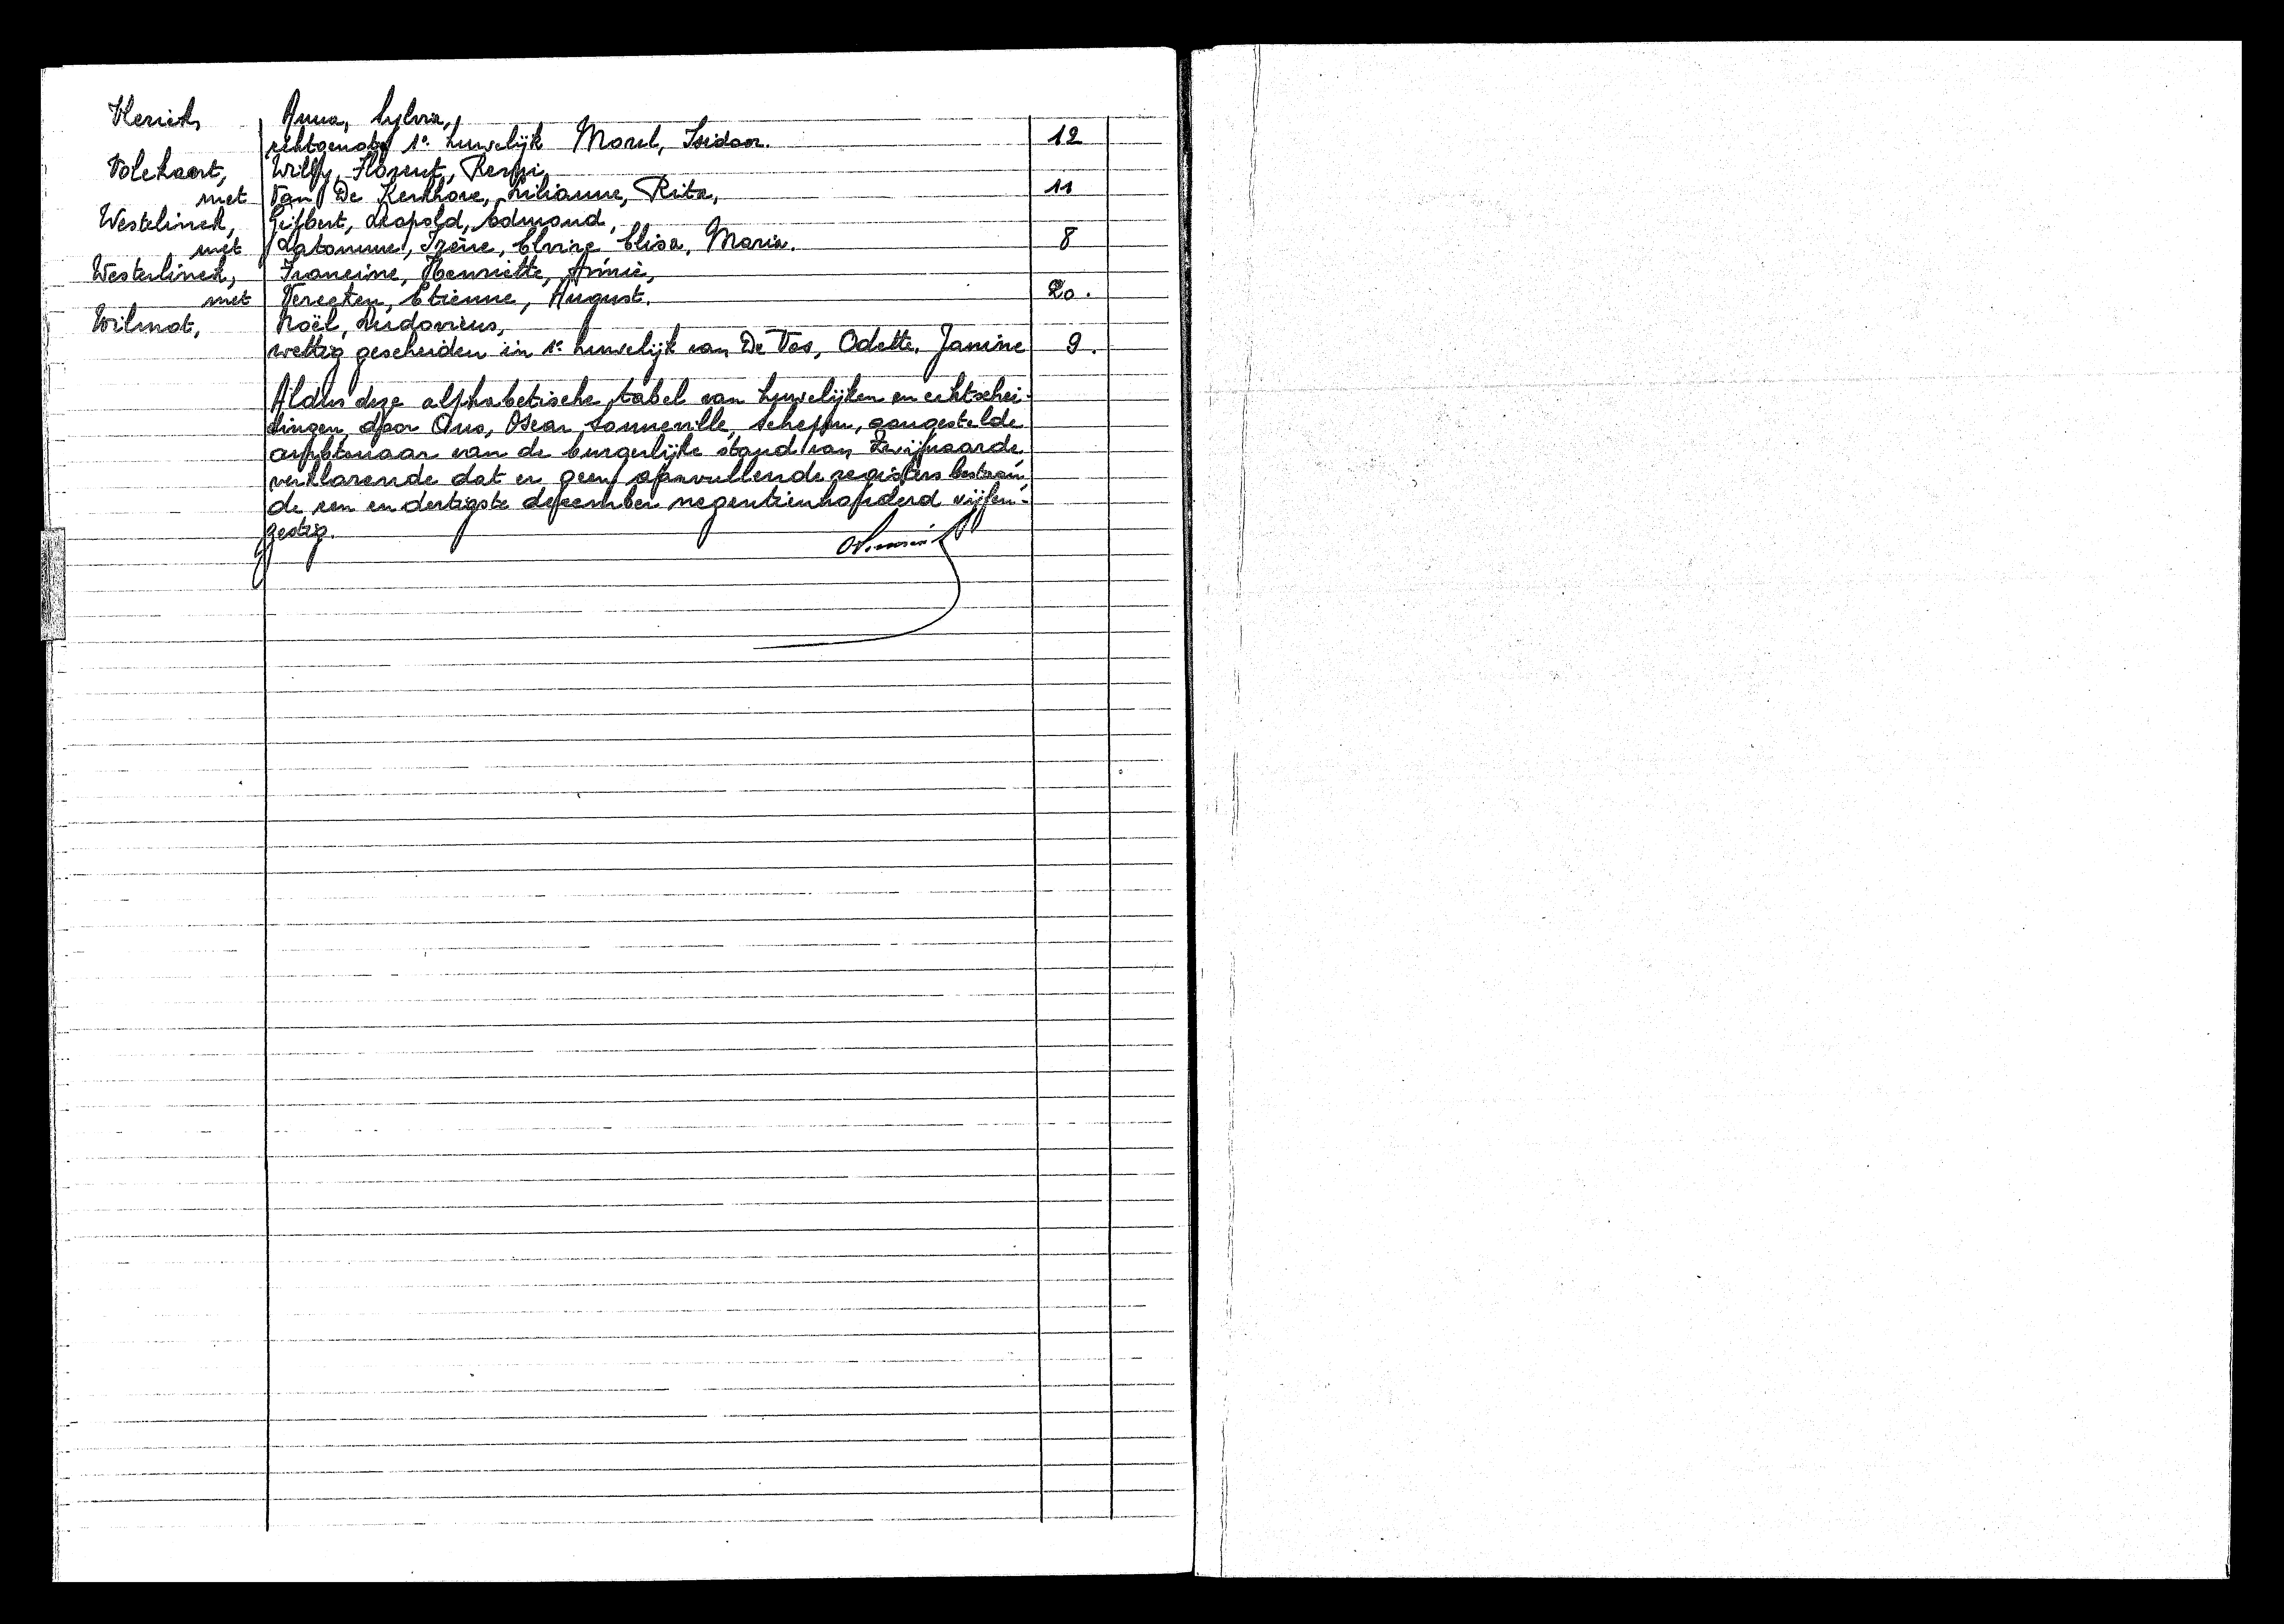 Vlerick, Anna, Sylvia,
echtgenote 1e huwelijk Morel, Isidoor. 12
Volckaert, Willy, Florent, Remi,
met Van De Kerkhove, Lilianne, Rita, 11
Westelinck, Gijbert, Leopold, Edmond,
met Latomme, Irène, Elvire, Elisa, Maria. 8
Westerlinck, Francine, Henriette, Annie,
met Verecken, Etienne, August. 20.
Wilmot, Noël, Ludovicus,
wettig gescheiden in 1e huwelijk van De Vos, Odette, Janine 9.
Aldus deze alphabetische tabel van huwelijken en echtschei-
dingen, door Ons, Oscar Sonneville, schepen, aangestelde
ambtenaar van de burgerlijke stand van Zwijnaarde,
verklarende dat er geen aanvullende registers bestaan,
de een en dertigste december negentienhonderd vijfen-
zestig.